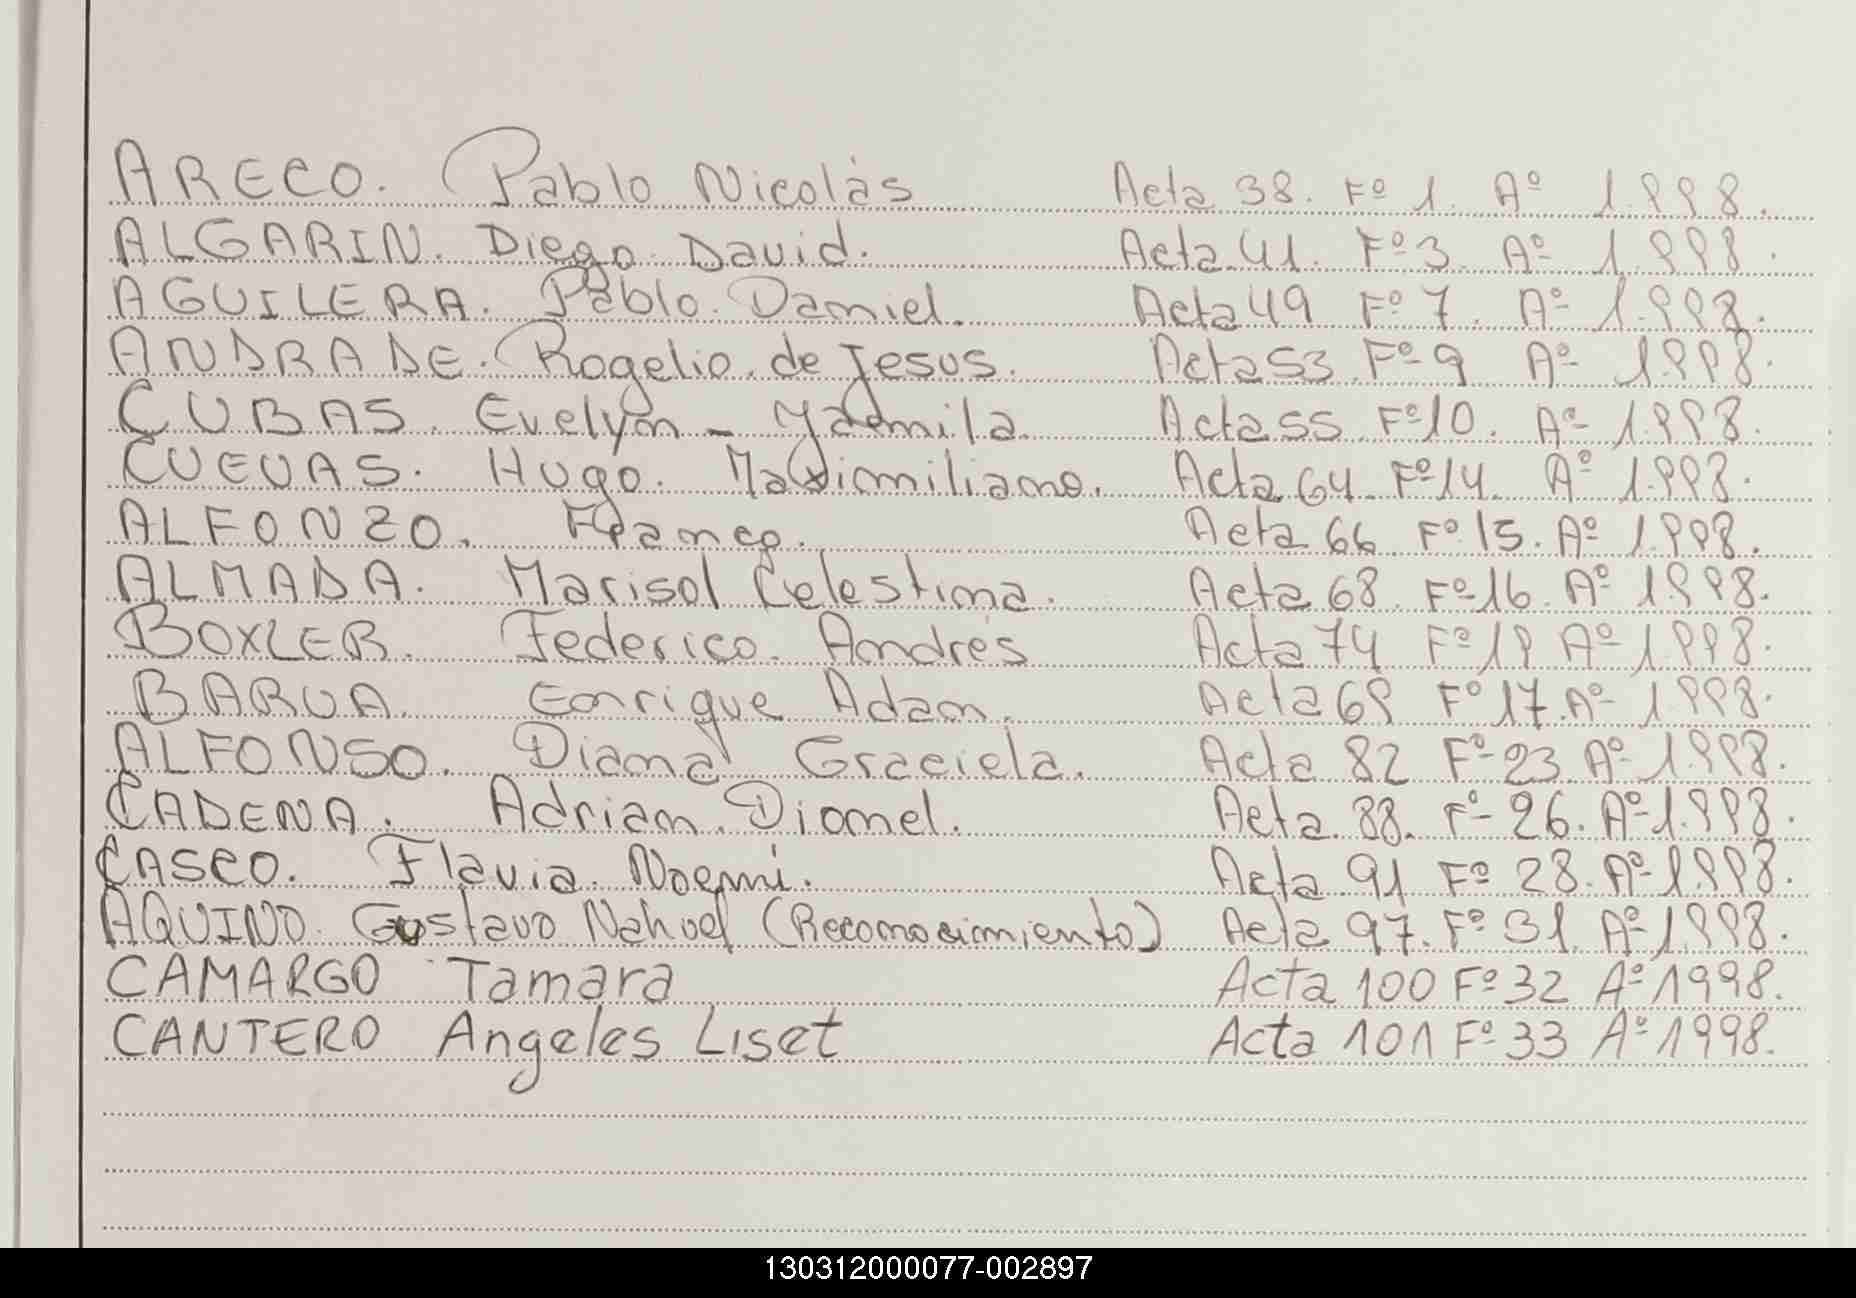 ARECO. Pablo Nicolás Acta 38. Fº 1. Aº 1.998.
ALGARIN. Diego David. Acta 41. Fº 3. Aº 1.998.
AGUILERA. Pablo. Daniel. Acta 49 Fº 7. Aº 1.998.
ANDRADE. Rogelio. de Jesus. Acta 53. Fº 9 Aº 1.998.
CUBAS. Evelyn - Yaemila. Acta 55. Fº 10. Aº 1.998.
CUEVAS. Hugo. Maximiliano. Acta 64. Fº 14. Aº 1.998.
ALFONZO. Franco. Acta 66 Fº 15. Aº 1.998.
ALMADA. Marisol Celestina. Acta 68. Fº 16. Aº 1.998.
BOXLER. Federico. Andrés Acta 74 Fº 19 Aº 1.998.
BARUA. Enrique Adan. Acta 69 Fº 17. Aº 1.998.
ALFONSO. Diana Graciela. Acta 82 Fº 23. Aº 1.998.
CADENA. Adrian. Dionel. Acta. 88. Fº 26. Aº 1.998.
CASCO. Flavia. Noemi. Acta 91 Fº 28. Aº 1.998.
AQUINO. Gustavo Nahuel (Reconocimiento) Acta 97. Fº 31. Aº 1.998.
CAMARGO Tamara Acta 100 Fº 32 Aº 1998.
CANTERO Angeles Liset Acta 101 Fº 33 Aº 1998.
130312000077-002897